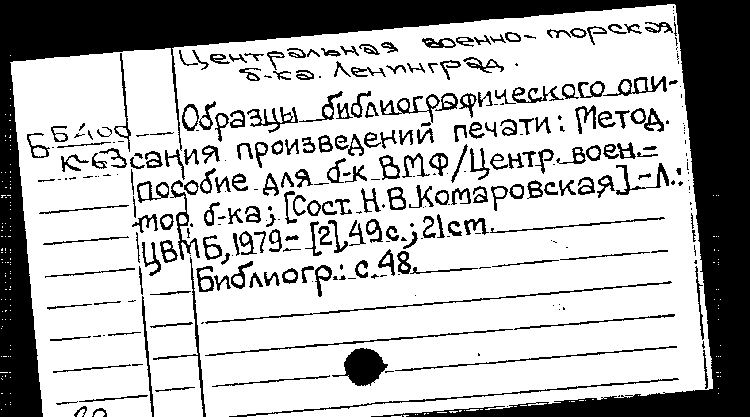 Центральная военно-морская
б-ка. Ленинград.
Образцы библиографического опи-
ББ400
К-63
сания произведений печати: Метод.
пособие для б-к ВМФ/Центр. воен.-
мор. б-ка; [Сост. Н.В.Комаровская].-Л.:
ЦВМБ, 1979.- [2], 49с.; 21cm.
Библиогр.: с.48.